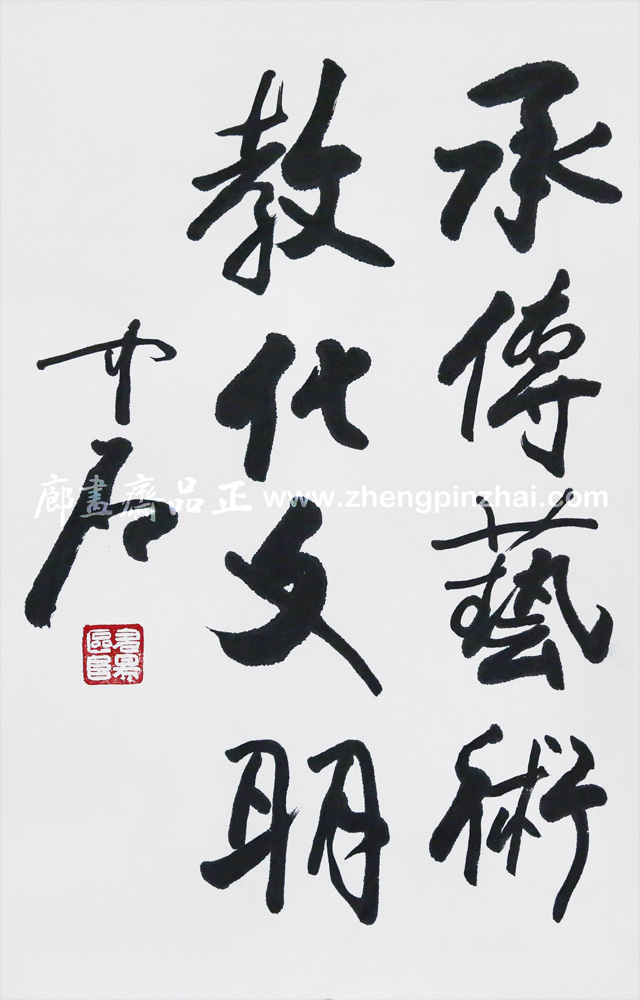 承傳藝術
教化文明
中石
正品齋畫廊 www.zhengpinzhai.com